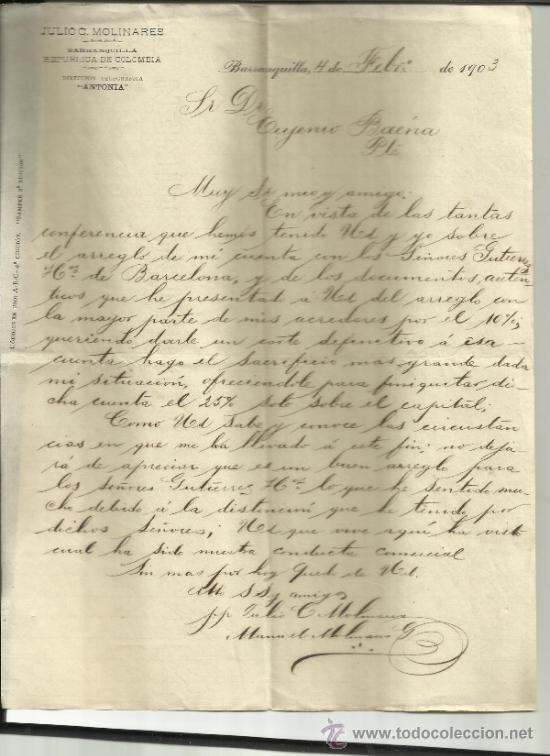 JULIO C. MOLINARES
BARRANQUILLA
REPUBLICA DE COLOMBIA
"ANTONIA"
Barranquilla, 4 de Feb.º de 1903
Sr Dr
Eugenio Baena
Pte
Muy Sr mio y amigo:
En vista de las tantas
conferencia que hemos tenido Ud y yo sobre
el arreglo de mi cuenta con los Señores Gutierrez
Hos de Barcelona, y de los documentos auten
ticos que he presentad á Ud del arreglo con
la mayor parte de mis acredores por el 10%;
queriendo darle un corte definitivo á esa
cuenta hago el sacrificio mas grande dada
mi situación, ofreciendole para finiquitar di
cha cuenta el 25% solo sobre el capital;
Como Ud sabe y conoce las circustán
cias en que me ha llevado á este fin; no deja
rá de apreciar que es un buen arreglo para
los señores Gutiérrez Hos lo que he sentido mu
cho debido a la distinción que he tenido por
dichos señores; Ud que vive aquí ha visto
cual ha sido nuestra conducta comercial
Sin mas por hoy quedo de Ud.
SSy amigo
p.p. Julio C Molinares
Manuel Molinares G
CÓDIGOS EN USO: A. B. C. 4ª EDICIÓN. "SAMPER 2ª EDICION"
todocoleccion
www.todocoleccion.net